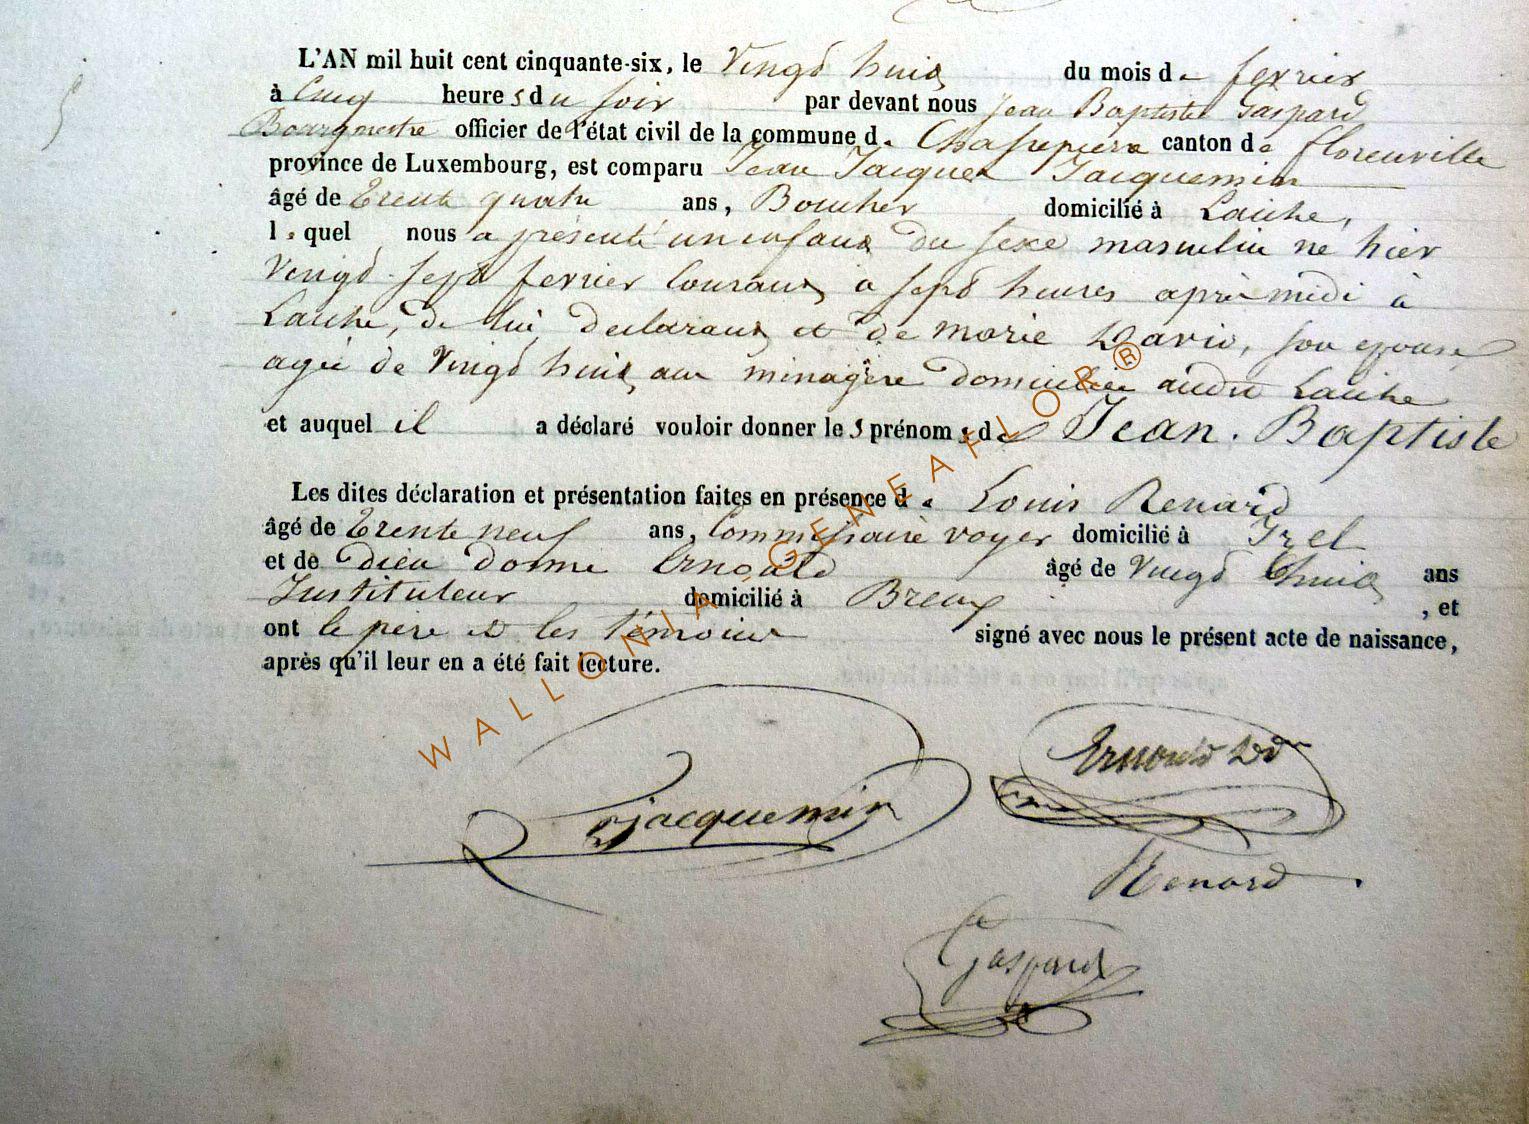 L'AN mil huit cent cinquante-six, le Vingt huit du mois de fevrier
à Cinq heures du soir par devant nous Jean Baptiste Gaspard
Bourgmestre officier de l'état civil de la commune de Chassepierre canton de florenville
province de Luxembourg, est comparu Jean Jacques Jacquemin
âgé de trente quatre ans, Boucher domicilié à Laiche,
lequel nous a présenté un enfant du sexe masculin né hier
Vingt-sept fevrier courant, a sept heures après midi à
Laiche, de lui declarant et de marie David, son epouse
agée de Vingt huit ans ménagère domiciliée audit Laiche
et auquel il a déclaré vouloir donner les prénoms de Jean. Baptiste
Les dites déclaration et présentation faites en présence de Louis Renard
âgé de trente neuf ans, Commissaire voyer domicilié à Izel
et de Dieu donné Ernould âgé de Vingt huit ans
Instituteur domicilié à Breux , et
ont le père et les témoins signé avec nous le présent acte de naissance,
après qu'il leur en a été fait lecture.
WALLONIA.GENEAFLOR®
Jacquemin
Ernould Dd
Renard
Gaspard